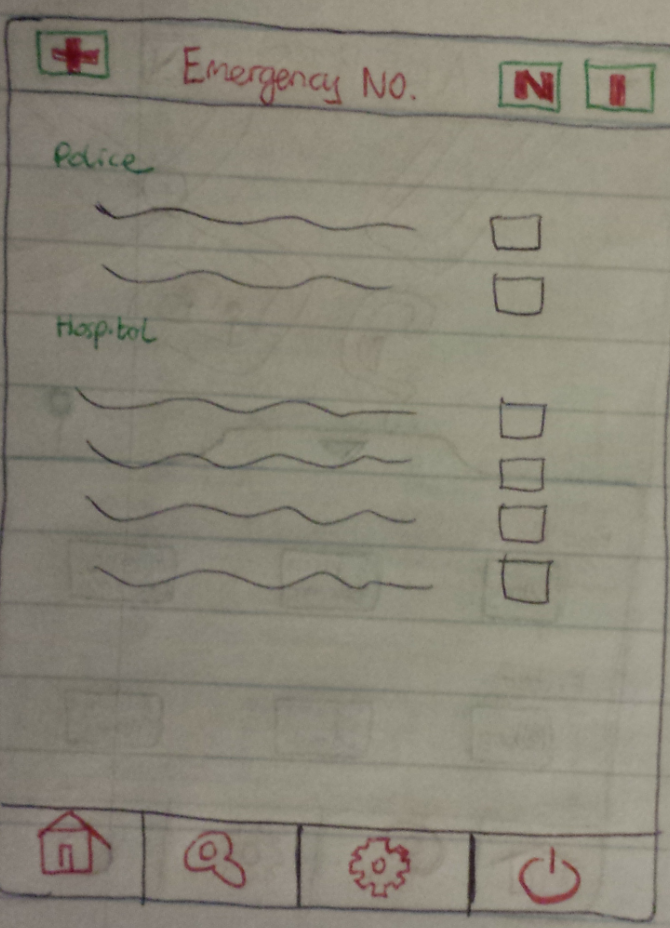 Emergency NO. N I
Police
Hospital